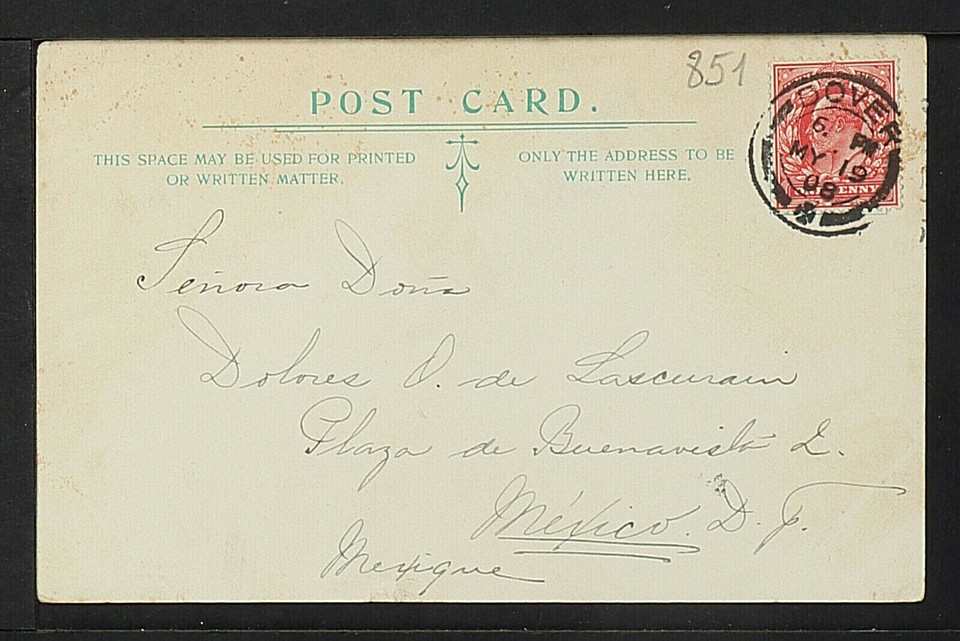 851
POST CARD.
THIS SPACE MAY BE USED FOR PRINTED
OR WRITTEN MATTER.
ONLY THE ADDRESS TO BE
WRITTEN HERE.
DOVER
6. PM
MY 19
08
ONE PENNY
Señora Doña
Dolores O. de Lascurain
Plaza de Buenavista 2.
México. D. F.
Mexique